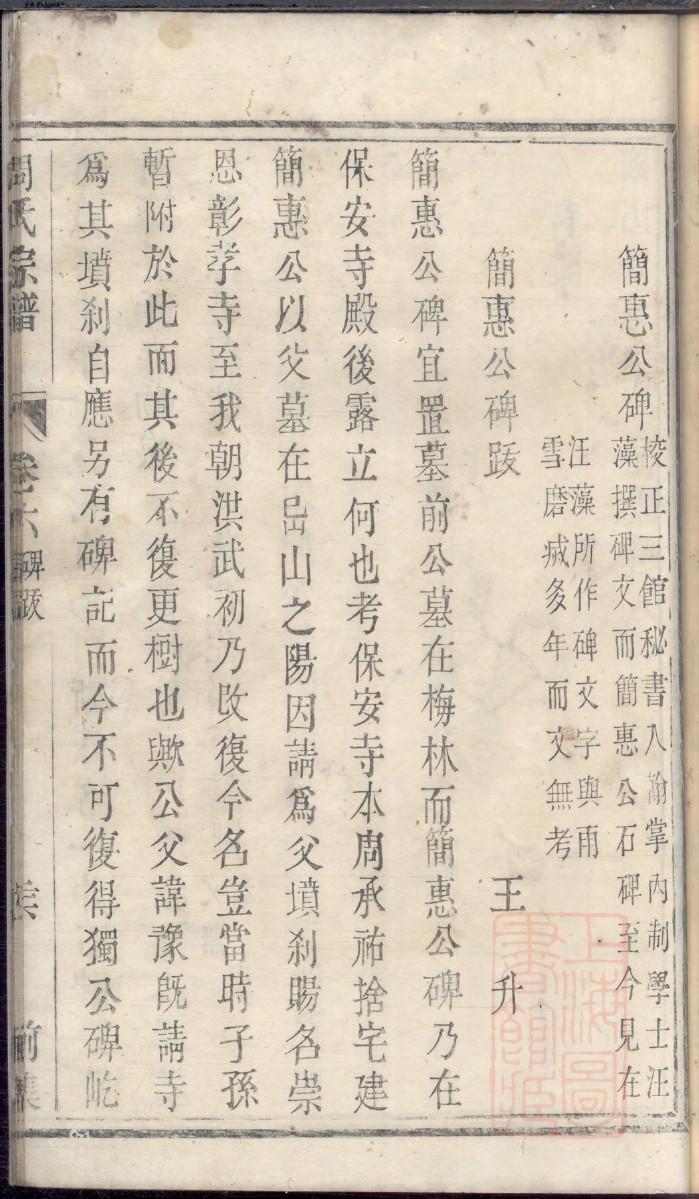 簡惠公碑
校正三館秘書入翰掌內制學士汪
藻撰碑文而簡惠公石碑至今見在
汪藻所作碑文字與雨
雪磨烕多年而文無考
簡惠公碑跋
王升
簡惠公碑宜置墓前公墓在梅林而簡惠公碑乃在
保安寺殿後露立何也考保安寺本周承祐捨宅建
簡惠公以父墓在岊山之陽因請爲父墳刹賜名崇
恩彰孝寺至我朝洪武初乃改復今名豈當時子孫
暫附於此而其後不復更樹也歟公父諱豫旣請寺
爲其墳刹自應另有碑記而今不可復得獨公碑屹
周氏宗譜
卷六
碑跋
前集
上海圖書館藏